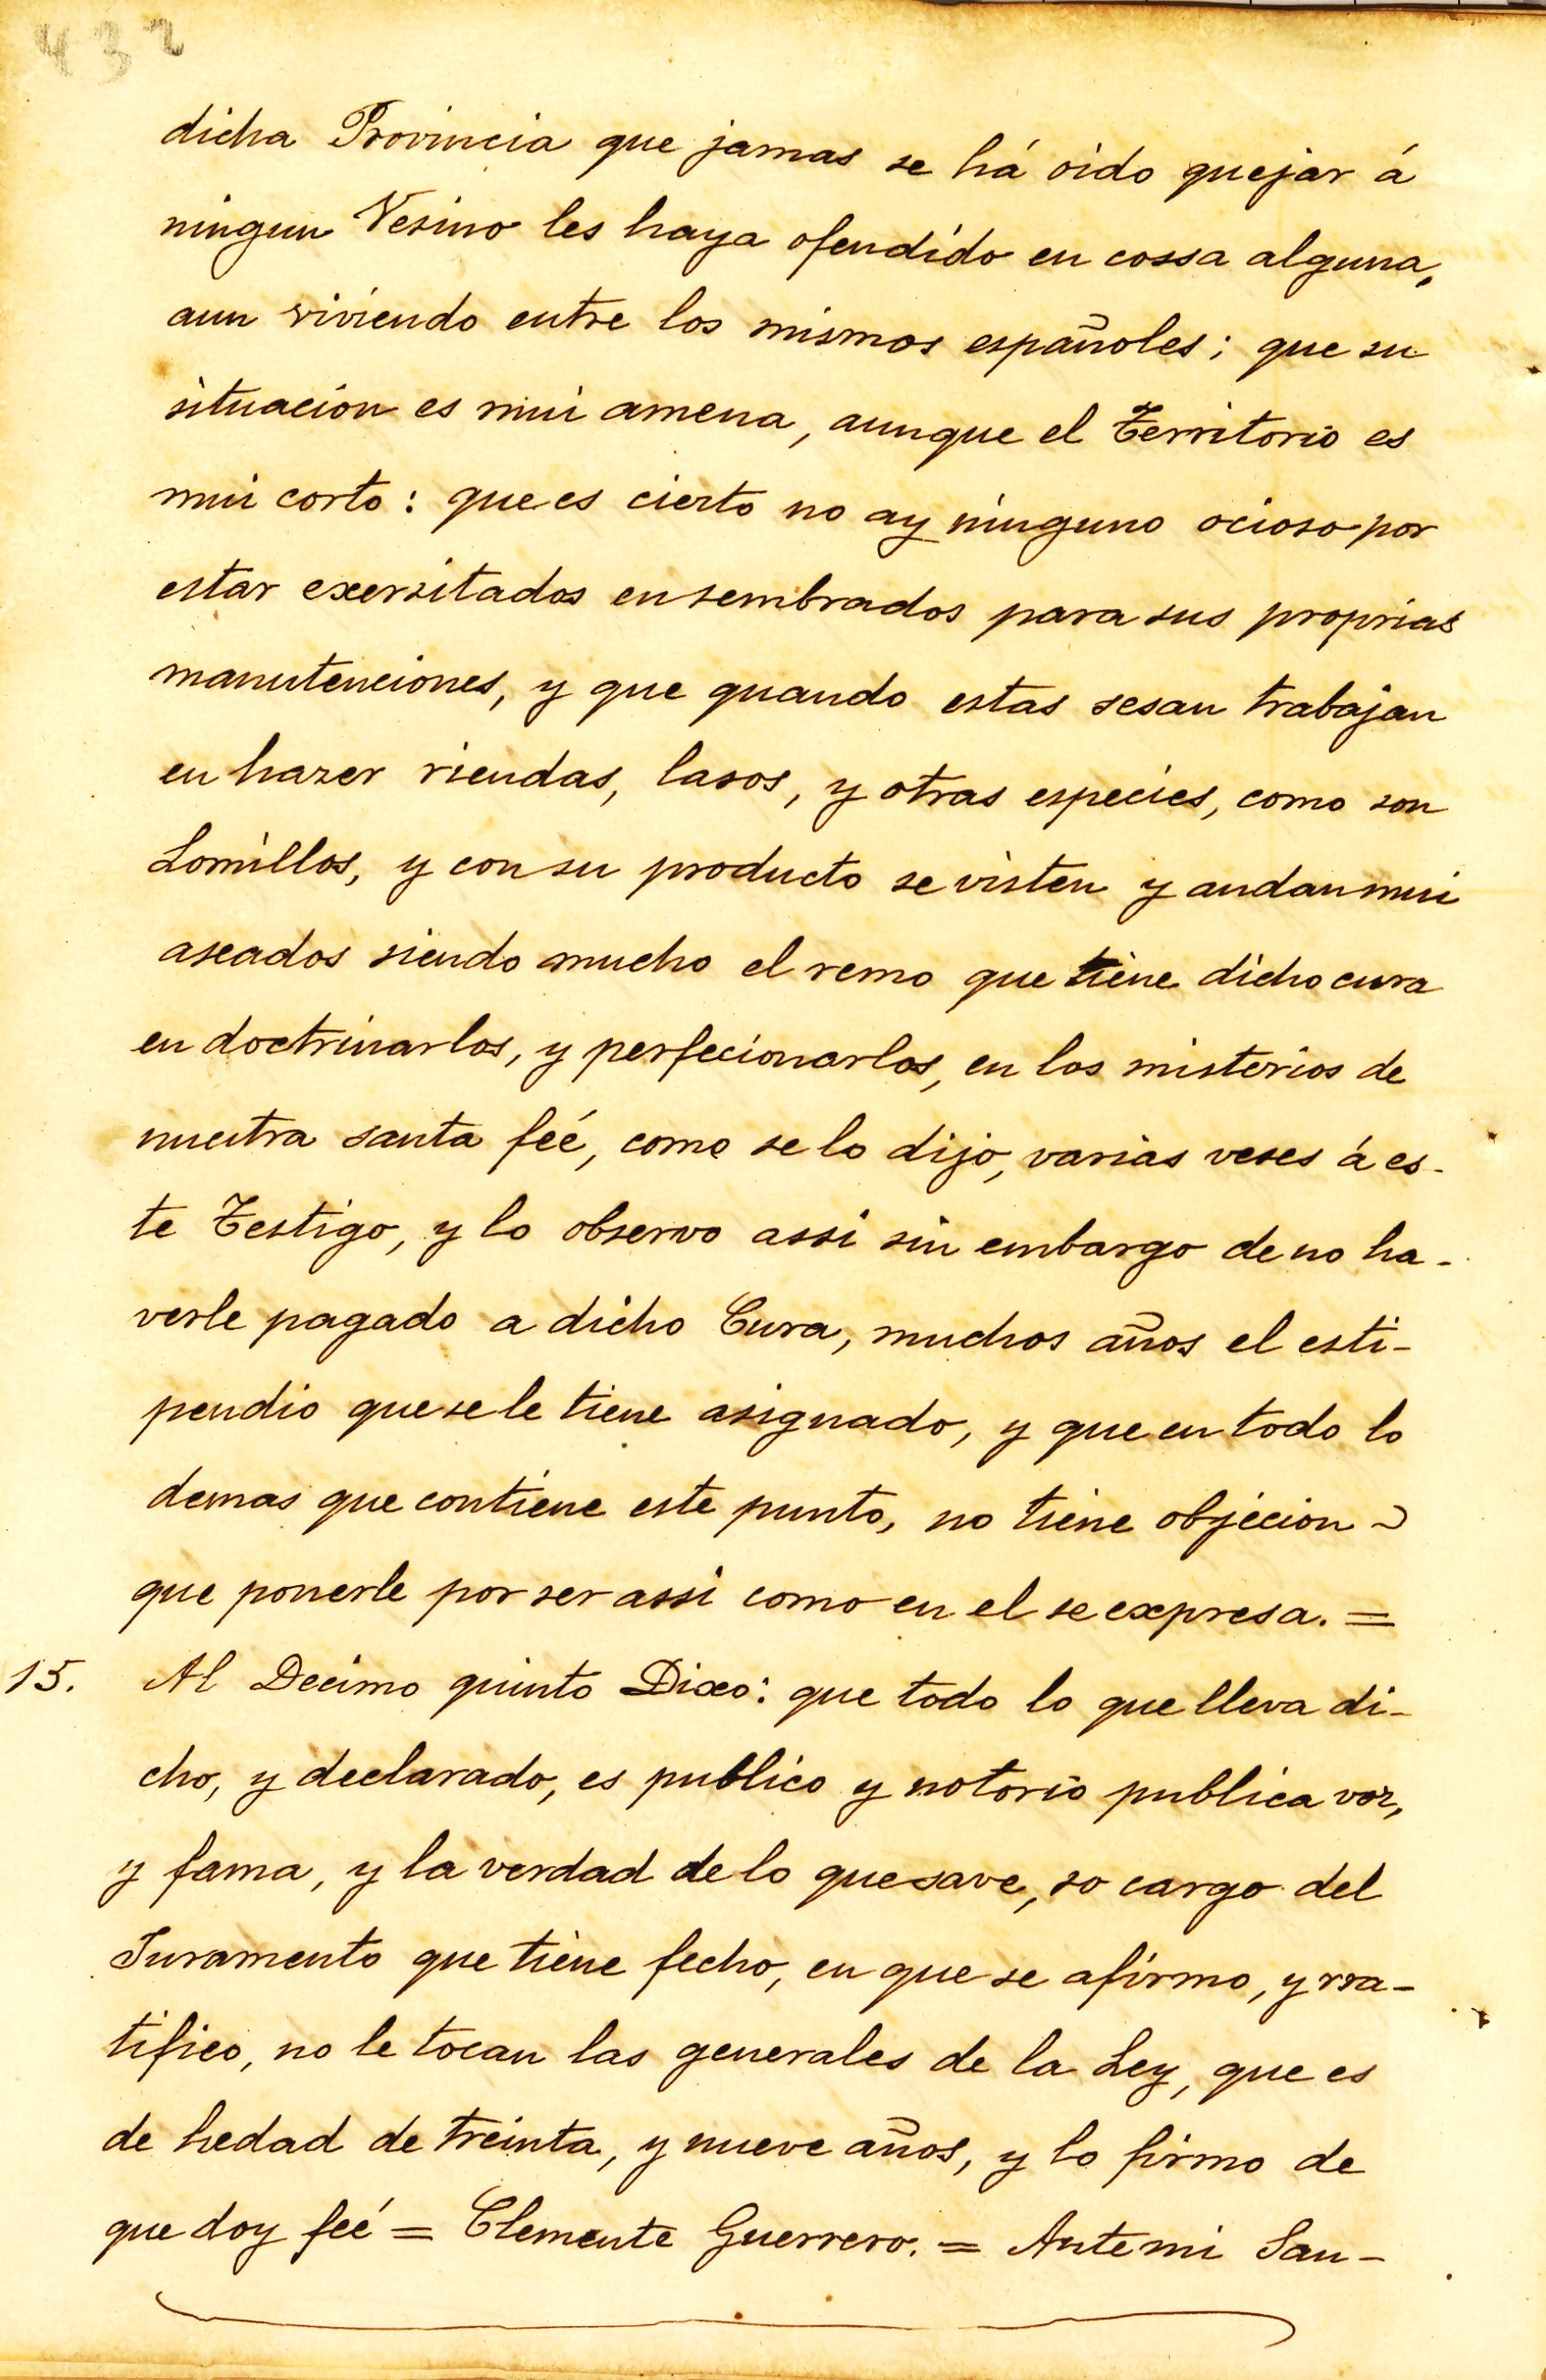 432
dicha Provincia que jamas se há oido quejar á
ningun Vesino les haya ofendido en cossa alguna,
aun viviendo entre los mismos españoles; que su
situacion es mui amena, aunque el Territorio es
mui corto: que es cierto no ay ninguno ocioso por
estar exersitados en sembrados para sus proprias
manutenciones, y que quando estas sesan trabajan
en hazer riendas, lasos, y otras especies, como son
Lomillos, y con su producto se visten y andan mui
aseados siendo mucho el remo que tiene dicho cura
en doctrinarlos, y perfecionarlos, en los misterios de
nuestra santa feé, como se lo dijo, varias veses á es-
te Testigo, y lo observo assi sin embargo de no ha-
verle pagado a dicho Cura, muchos años el esti-
pendio que se le tiene asignado, y que en todo lo
demas que contiene este punto, no tiene objecion
que ponerle por ser assi como en el se expresa. =
15. Al Decimo quinto Dixo: que todo lo que lleva di-
cho, y declarado, es publico y notorio publica voz,
y fama, y la verdad de lo que save, so cargo del
Juramento que tiene fecho, en que se afirmo, y rra-
tifico, no le tocan las generales de la Ley, que es
de hedad de treinta, y nueve años, y lo firmo de
que doy feé = Clemente Guerrero. = Ante mi San-